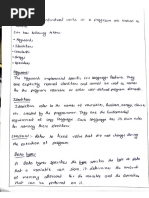 individual units in a program are known as
C++ has following tokens
• Keywords
• Identifiers
• Constants
• Strings
• Operators
Keyword:
The keywords implemented specific C++ language features. They
are explicitly reserved identifiers and cannot be used as names
for the program variables or other user defined program elements.
Identifiers:
Identifiers refer to the names of variables, functions, arrays, classes
etc. created by the programmer. They are the fundamental
requirement of any language. Each language has its own rules
for naming these identifiers.
Constants:- Refer to fixed value that do not change during
the execution of program.
Data types:
A data types specifies the type of data that
a variable can store, it determines the amount
of memory allocated to the variable and the operations
that can be preferred on it